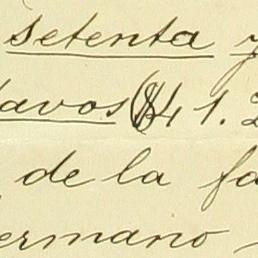 setenta y
avos ($41.2
de la fa
ermano